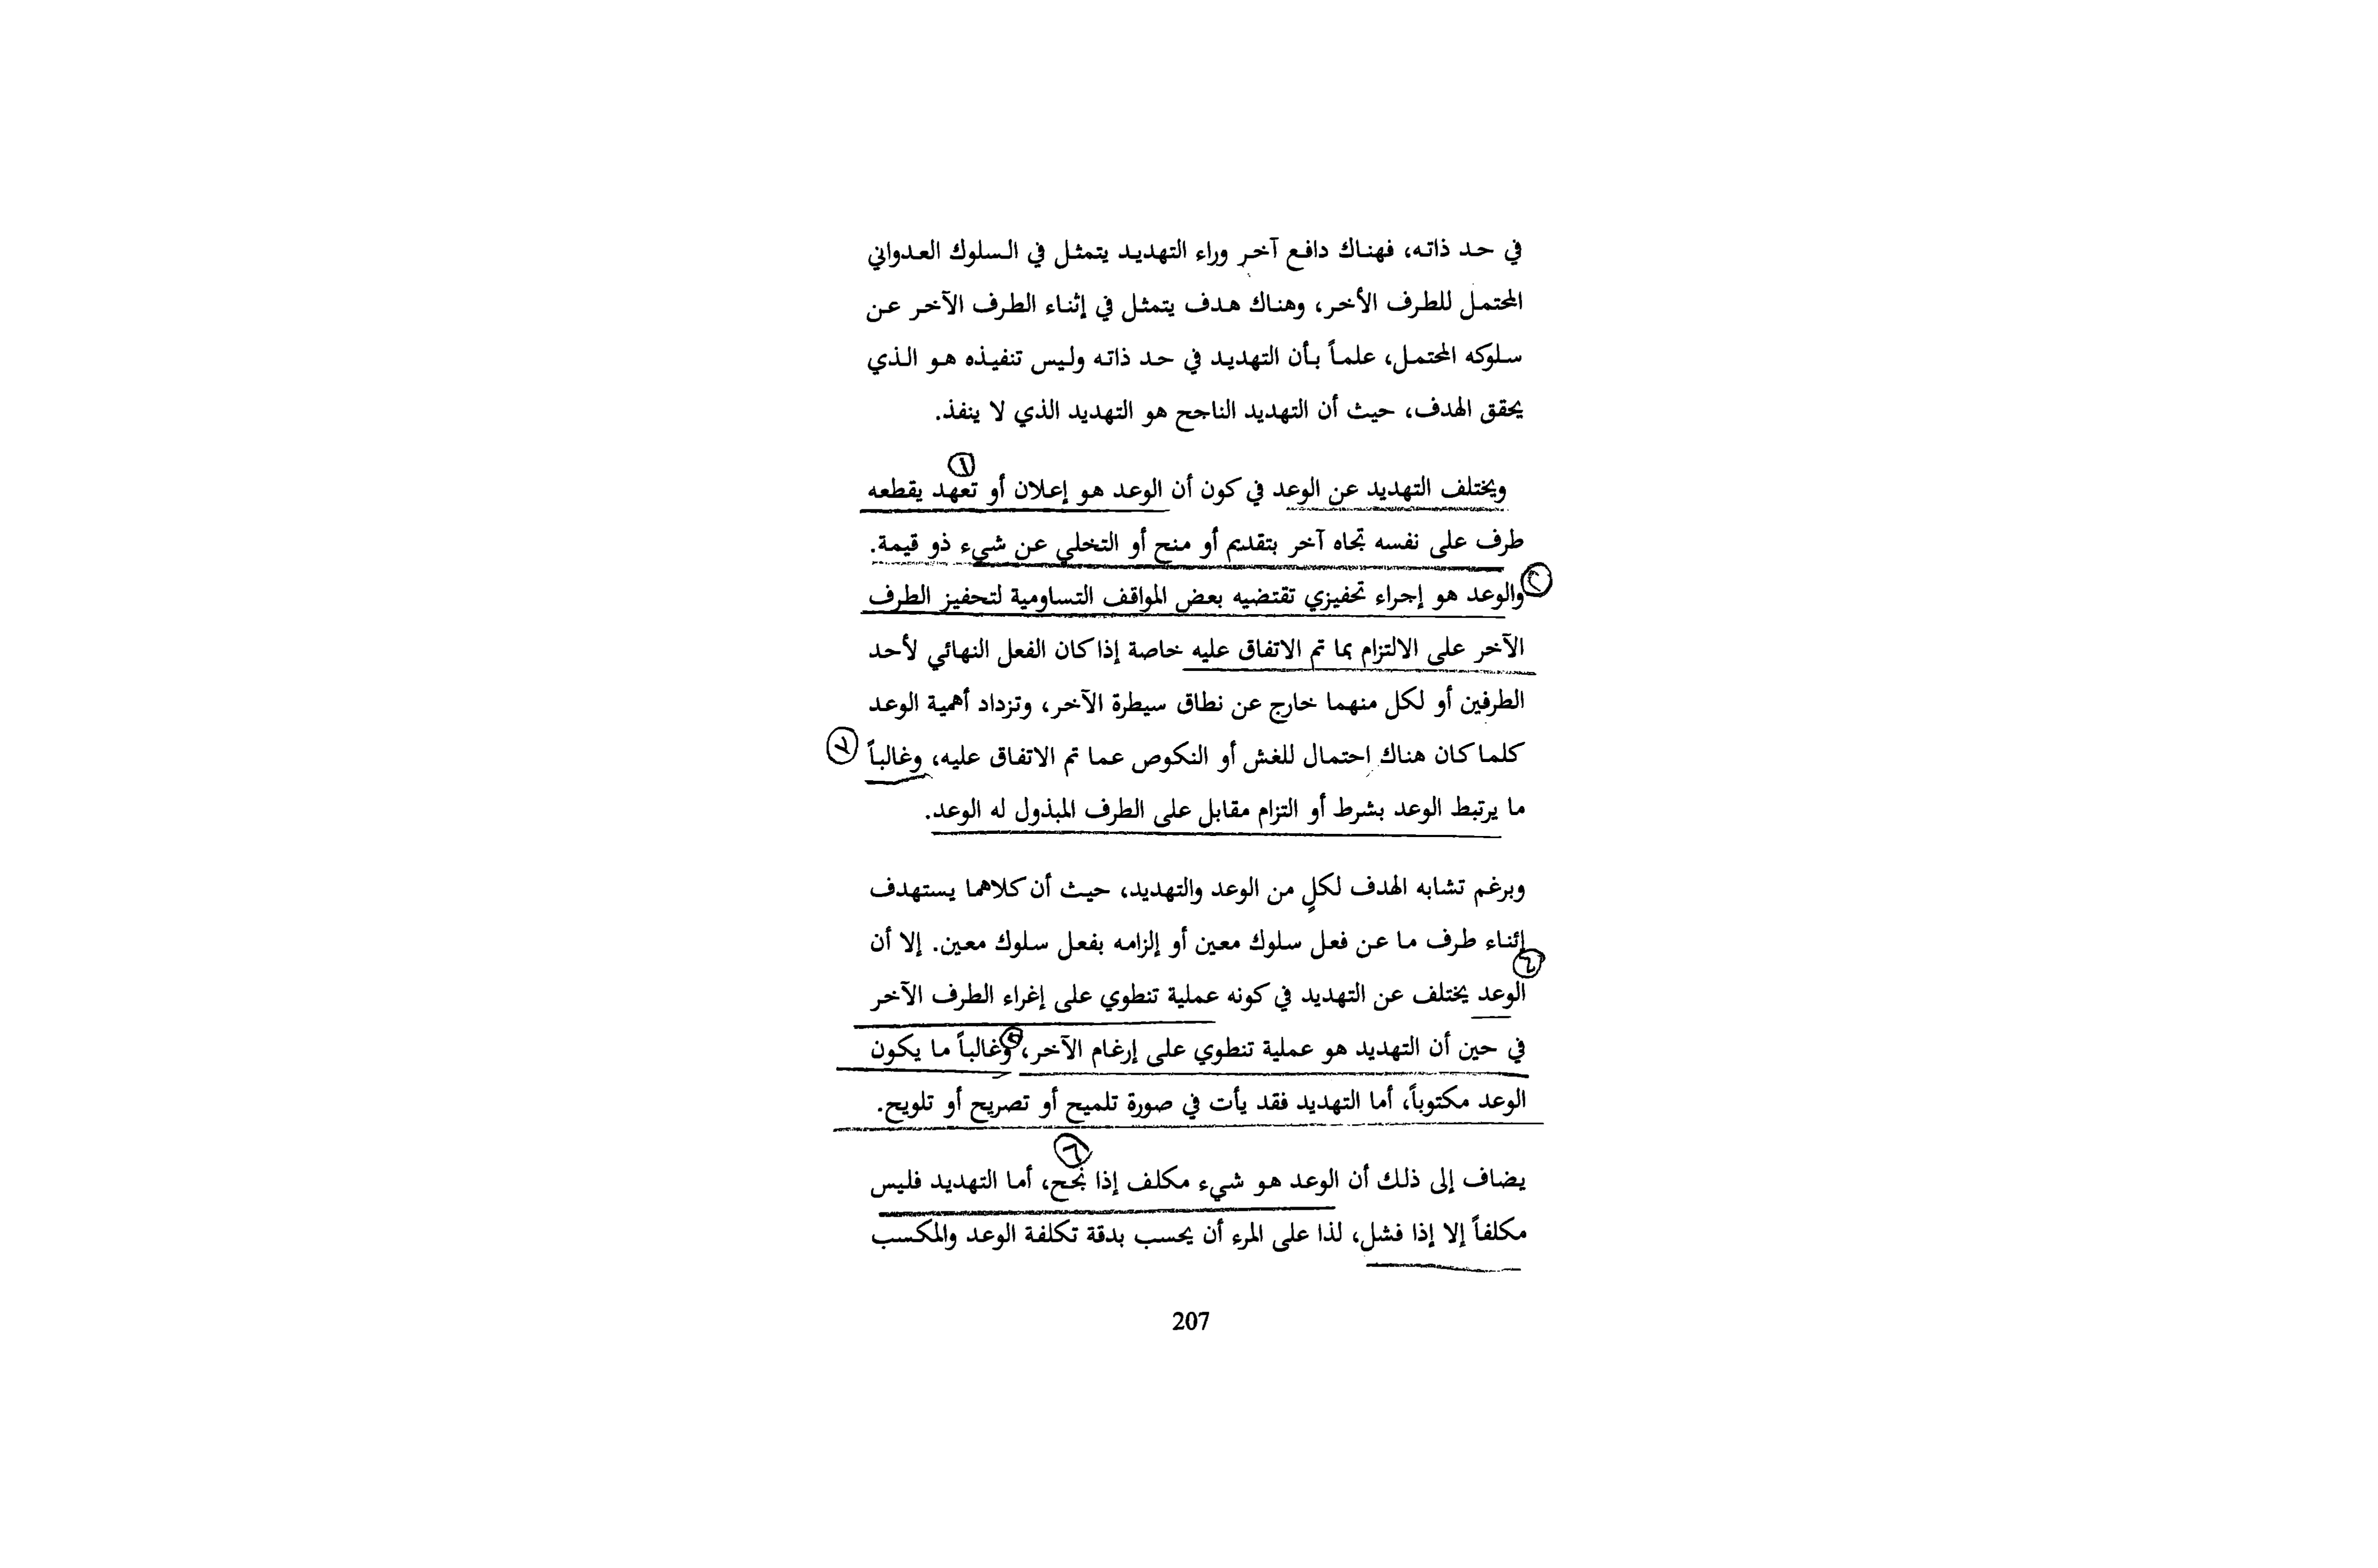 في حد ذاته، فهناك دافع آخر وراء التهديد يتمثل في السلوك العدواني
المحتمل للطرف الأخر، وهناك هدف يتمثل في إثناء الطرف الآخر عن
سلوكه المحتمل، علماً بأن التهديد في حد ذاته وليس تنفيذه هو الذي
يحقق الهدف، حيث أن التهديد الناجح هو التهديد الذي لا ينفذ.
١
ويختلف التهديد عن الوعد في كون أن الوعد هو إعلان أو تعهد يقطعه
طرف على نفسه تجاه آخر بتقديم أو منح أو التخلي عن شيء ذو قيمة.
والوعد هو إجراء تحفيزي تقتضيه بعض المواقف التساومية لتحفيز الطرف
الآخر على الالتزام بما تم الاتفاق عليه خاصة إذا كان الفعل النهائي لأحد
الطرفين أو لكل منهما خارج عن نطاق سيطرة الآخر، وتزداد أهمية الوعد
كلما كان هناك احتمال للغش أو النكوص عما تم الاتفاق عليه، وغالباً
ما يرتبط الوعد بشرط أو التزام مقابل على الطرف المبذول له الوعد.
وبرغم تشابه الهدف لكلٍ من الوعد والتهديد، حيث أن كلاهما يستهدف
إثناء طرف ما عن فعل سلوك معين أو إلزامه بفعل سلوك معين. إلا أن
الوعد يختلف عن التهديد في كونه عملية تنطوي على إغراء الطرف الآخر
في حين أن التهديد هو عملية تنطوي على إرغام الآخر، وغالباً ما يكون
الوعد مكتوباً، أما التهديد فقد يأت في صورة تلميح أو تصريح أو تلويح.
٦
يضاف إلى ذلك أن الوعد هو شيء مكلف إذا نجح، أما التهديد فليس
مكلفاً إلا إذا فشل، لذا على المرء أن يحسب بدقة تكلفة الوعد والمكسب
207